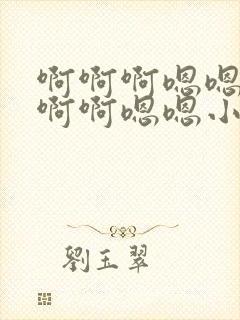 啊啊啊嗯嗯
啊啊嗯嗯小
劉玉翠